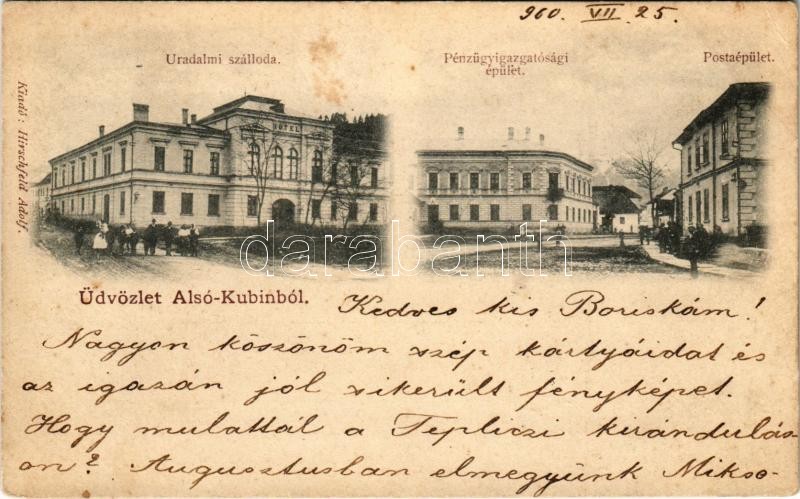 960. VII 25.
Uradalmi szálloda.
Pénzügyigazgatósági
épület.
Postaépület.
Kiadó: Hirschfeld Adolf.
HOTEL
darabanth
Üdvözlet Alsó-Kubinból.
Kedves kis Boriskám!
Nagyon köszönöm szép kártyáidat és
az igazán jól sikerült fényképet.
Hogy mulattál a Tepliczi kirándulás-
on? Augusztusban elmegyünk Mikso-